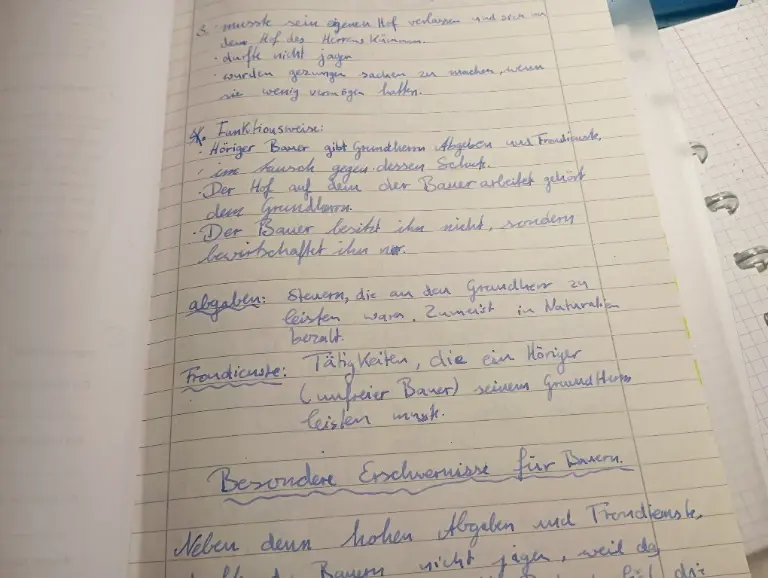 3. · musste sein eigenen Hof verlassen und sich um
dem Hof des Herrens kümmern.
· durfte nicht jagen
· wurden gezwungen sachen zu machen, wenn
sie wenig vermögen hatten.
4. Funktionsweise:
· Höriger Bauer gibt Grundherrn Abgaben und Frondienste,
im tausch gegen dessen Schutz.
· Der Hof auf dem der Bauer arbeitet gehört
dem Grundherrn.
· Der Bauer besitzt ihn nicht, sondern
bewirtschaftet ihn nur.
abgaben: Steuern, die an den Grundherr zu
leisten waren. Zumeist in Naturalien
bezalt.
Frondienste: Tätigkeiten, die ein Höriger
(unfreier Bauer) seinem GrundHerrn
leisten musste.
Besondere Erschwernisse für Bauern.
Neben denn hohen Abgaben und Frondienste,
Bauern nicht jagen, weil das